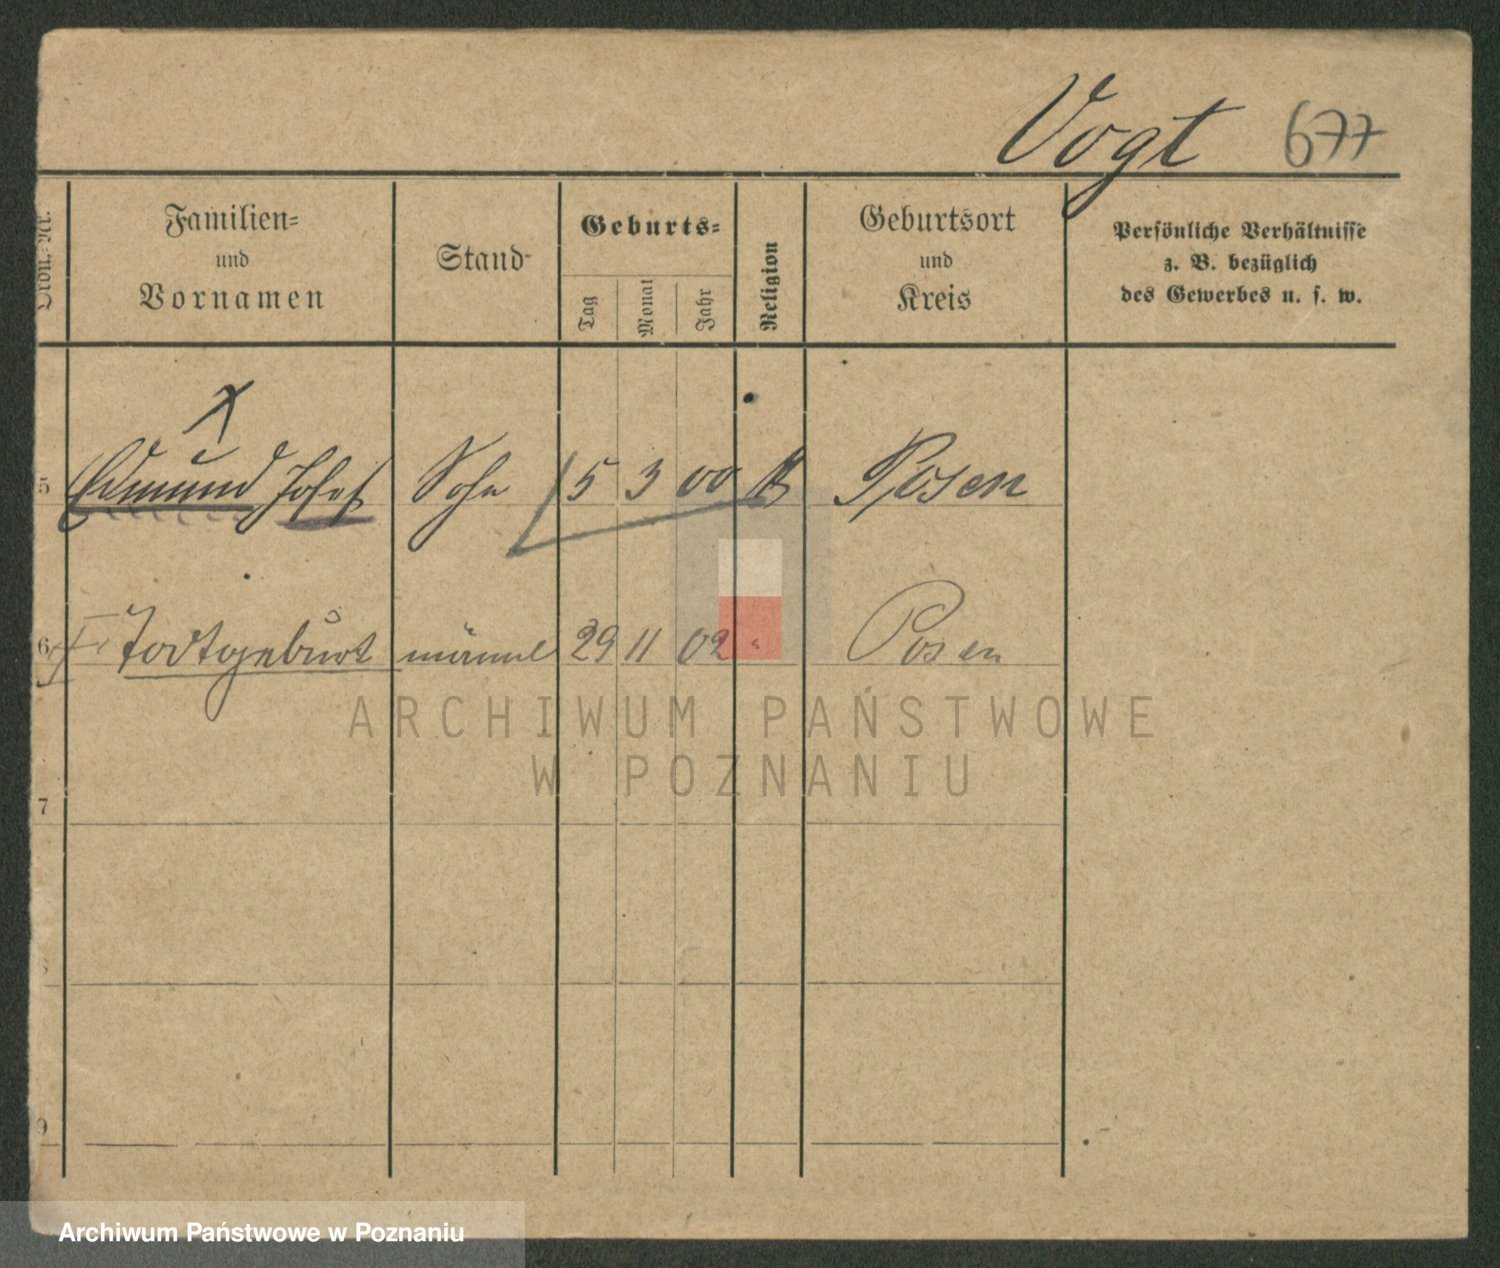 Vogt 677
Ordn.-Nr.
Familien-
und
Vornamen
Stand
Geburts-
Tag
Monat
Jahr
Religion
Geburtsort
und
Kreis
Persönliche Verhältnisse
z. B. bezüglich
des Gewerbes u. s. w.
5 Edmund Josef Sohn 5 3 00 Posen
6 Todtgeburt männl 29 11 02 " Posen
ARCHIWUM PAŃSTWOWE
W POZNANIU
7
9
Archiwum Państwowe w Poznaniu